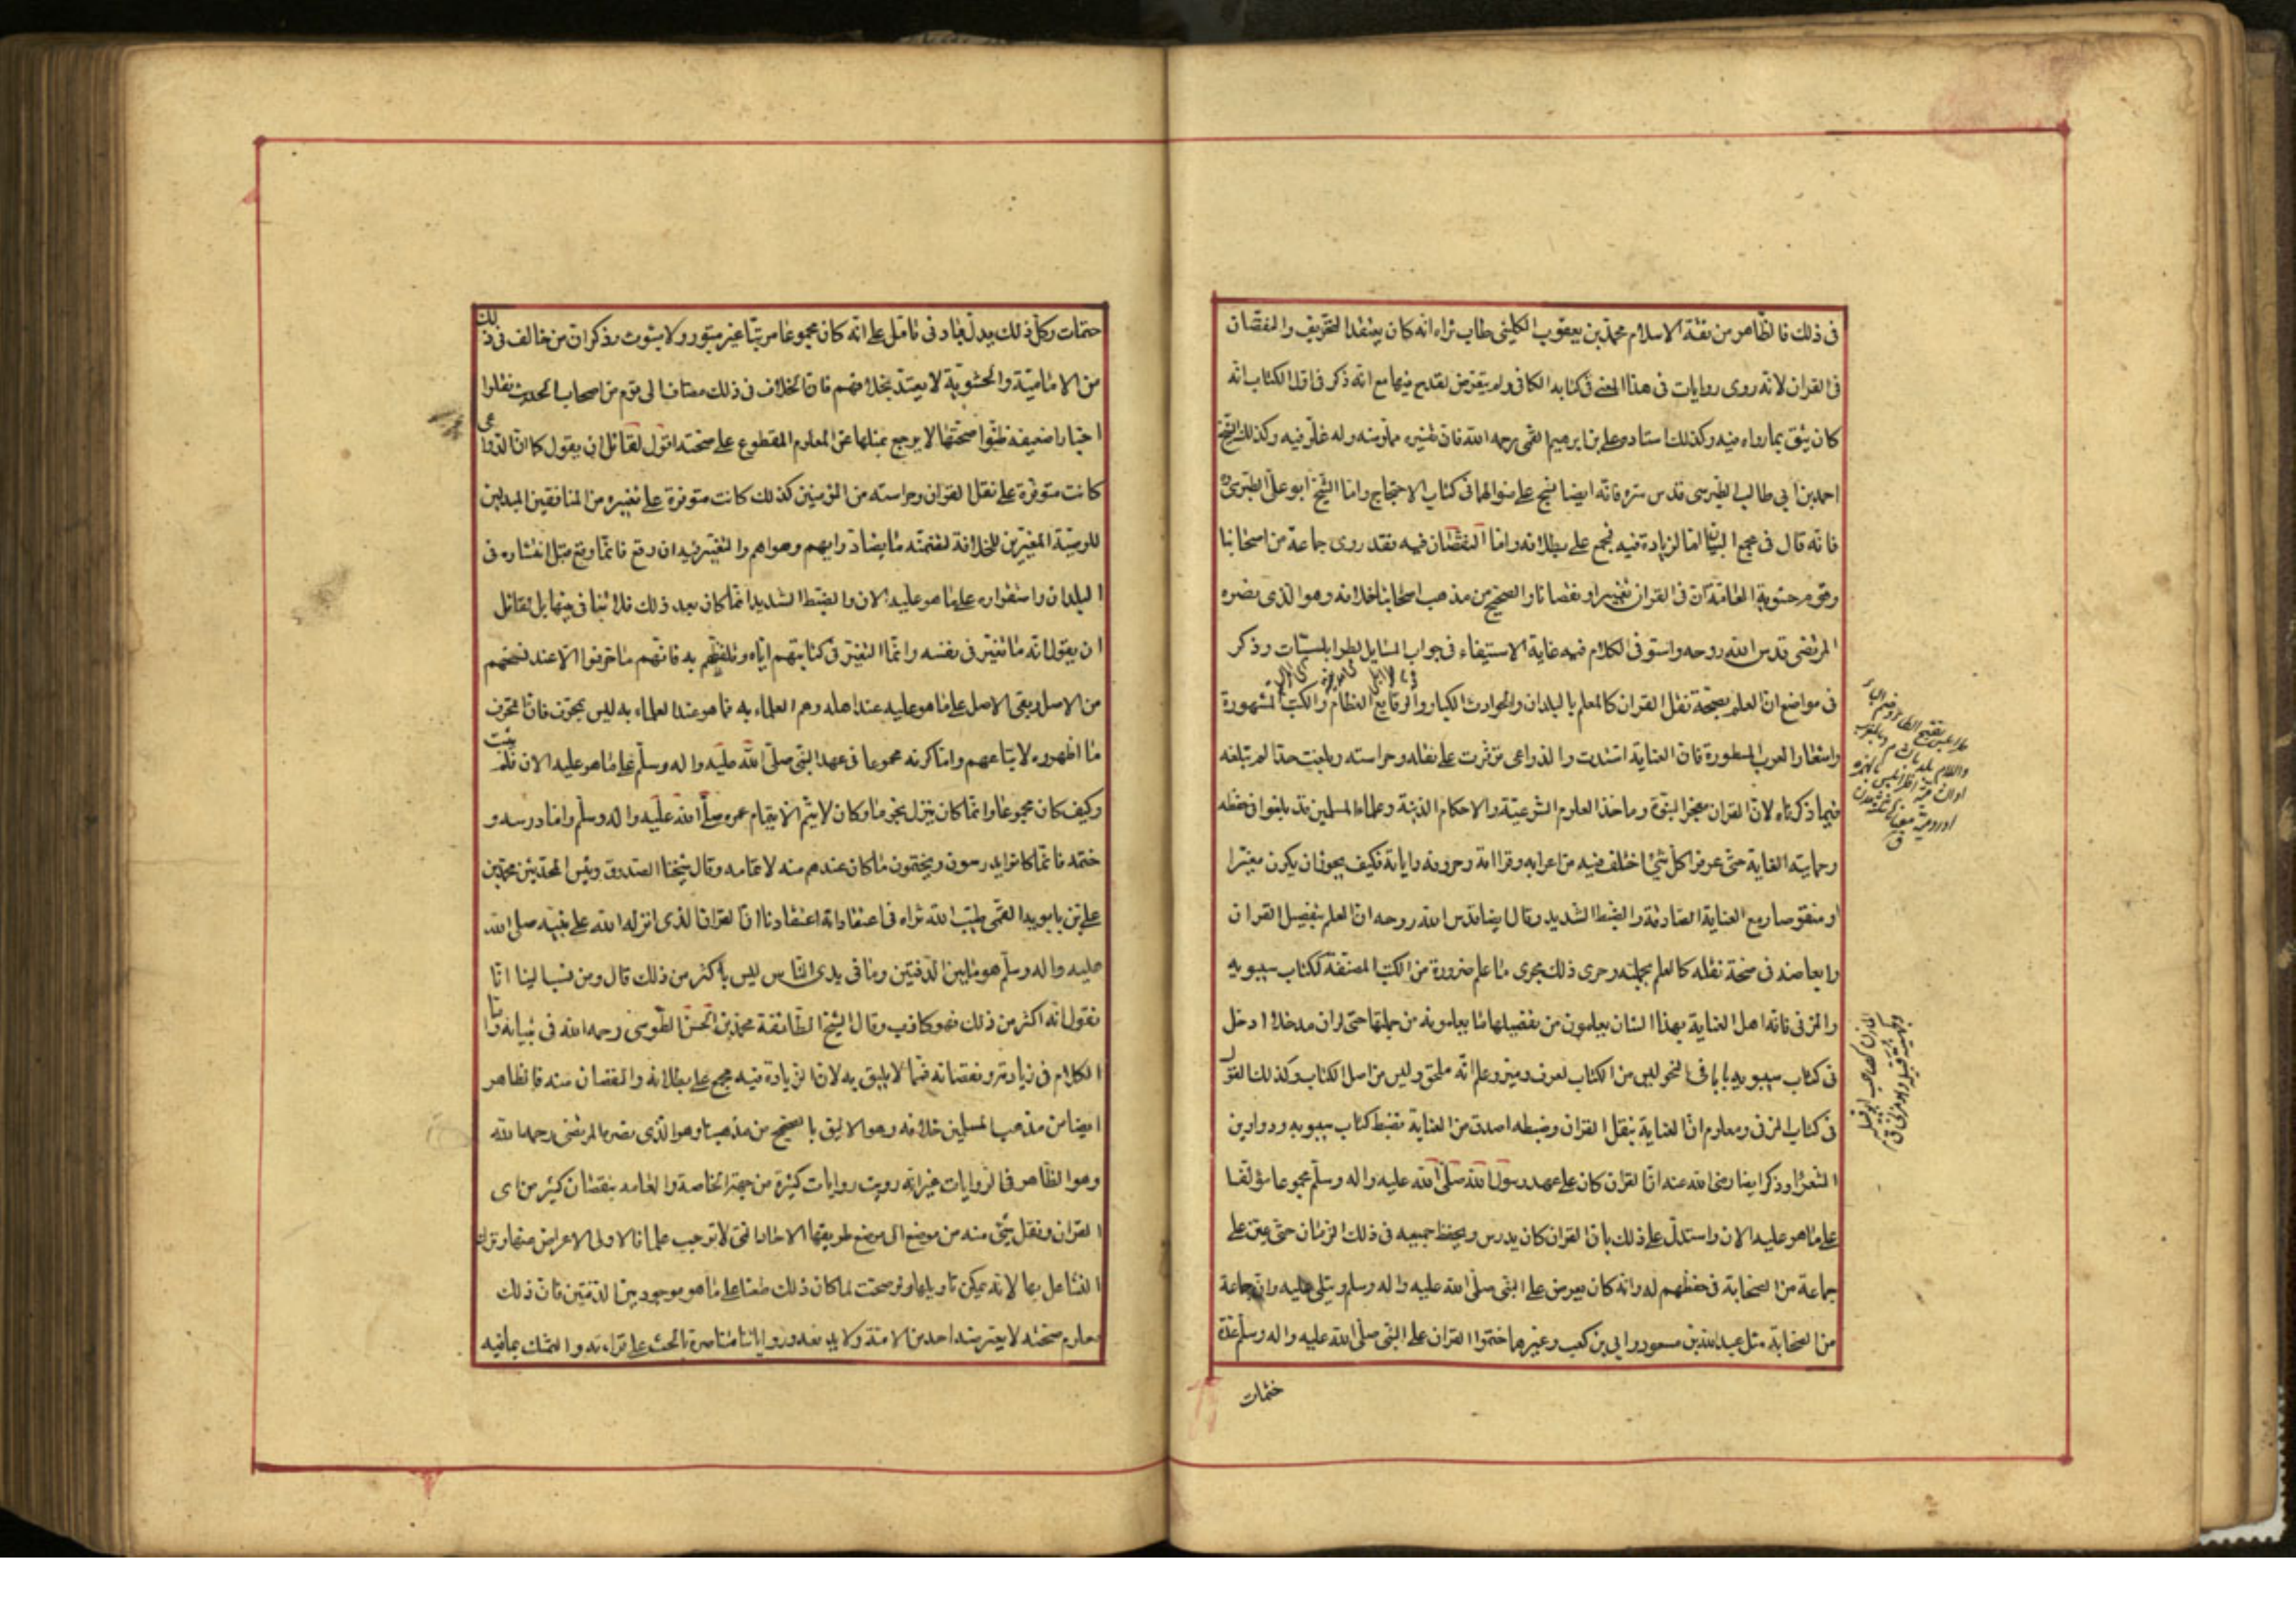 فى ذلك فالظاهر من ثقة الاسلام محمد بن يعقوب الكلينى طاب ثراه انه كان يعتقد التحريف والنقصان
فى القران لانه روى روايات فى هذا المعنى فى كتابه الكافى ولم يتعرض لقدح فيها مع انه ذكر فى اول الكتاب انه
كان يثق بما رواه فيه وكذلك استاده على بن ابرهيم القمى رحمه الله فان تفسيره مملو منه وله غلو فيه وكذلك الشيخ
احمد بن ابى طالب الطبرسى قدس سره فانه ايضا نسج على منوالهما فى كتاب الاحتجاج واما الشيخ ابو على الطبرسى
فانه قال فى مجمع البيان اما الزيادة فيه فمجمع على بطلانه واما النقصان فيه فقد روى جماعة من اصحابنا
وقوم من حشوية العامة ان فى القران تغييرا ونقصانا والصحيح من مذهب اصحابنا خلافه وهو الذى نصره
المرتضى قدس الله روحه واستوفى الكلام فيه غاية الاستيفاء فى جواب المسايل الطرابلسيات وذكر
فى مواضع ان العلم بصحة نقل القران كالعلم بالبلدان والحوادث الكبار والوقايع العظام والكتب المشهورة
واشعار العرب المسطورة فان العناية اشتدت والدواعى توفرت على نقله وحراسته وبلغت حدا لم تبلغه
فيما ذكرناه لان القران معجز النبوة وماخذ العلوم الشرعية والاحكام الدينية وعلماء المسلمين قد بلغوا فى حفظه
وحمايته الغاية حتى عرفوا كل شئ اختلف فيه من اعرابه وقراءته وحروفه واياته فكيف يجوز ان يكون مغيرا
او منقوصا مع العناية الصادقة والضبط الشديد وقال ايضا قدس الله روحه ان العلم بتفصيل القران
وابعاضه فى صحة نقله كالعلم بجملته وجرى ذلك مجرى ما علم ضرورة من الكتب المصنفة ككتاب سيبويه
والمزنى فان اهل العناية بهذا الشان يعلمون من تفصيلها ما يعلمونه من جملتها حتى لو ان مدخلا ادخل
فى كتاب سيبويه بابا فى النحو ليس من الكتاب لعرف وميز وعلم انه ملحق وليس من اصل الكتاب وكذلك القول
فى كتاب المزنى ومعلوم ان العناية بنقل القران وضبطه اصدق من العناية بضبط كتاب سيبويه ودواوين
الشعراء وذكر ايضا رضى الله عنه ان القران كان على عهد رسول الله صلى الله عليه واله وسلم مجموعا مؤلفا
على ما هو عليه الان واستدل على ذلك بان القران كان يدرس ويحفظ جميعه فى ذلك الزمان حتى عين على
جماعة من الصحابة فى حفظهم له وانه كان يعرض على النبى صلى الله عليه واله وسلم ويتلى عليه وان جماعة
من الصحابة مثل عبد الله بن مسعود وابى بن كعب وغيرهما ختموا القران على النبى صلى الله عليه واله وسلم عدة
ختمات
ختمات وكل ذلك يدل بادنى تامل على انه كان مجموعا مرتبا غير مبتور ولا مبثوث وذكر ان من خالف فى ذلك
من الامامية والحشوية لا يعتد بخلافهم فان الخلاف فى ذلك مضاف الى قوم من اصحاب الحديث نقلوا
اخبارا ضعيفة ظنوا صحتها لا يرجع بمثلها عن المعلوم المقطوع على صحته اقول لقائل ان يقول كما ان الدواعى
كانت متوفرة على نقل القران وحراسته من المؤمنين كذلك كانت متوفرة على تغييره من المنافقين المبدلين
للوصية المغيرين للخلافة لتضمنه ما يضاد رايهم وهواهم والتغيير فيه ان وقع فانما وقع قبل انتشاره فى
البلدان واستقراره على ما هو عليه الان والضبط الشديد انما كان بعد ذلك فلا تنافى بينهما بل لقائل
ان يقول انه ما تغير فى نفسه وانما التغير فى كتابتهم اياه وتلفظهم به فانهم ما حرفوا الا عند نسخهم
من الاصل وبقى الاصل على ما هو عليه عند اهله وهم العلماء به فما هو عند العلماء به ليس بمحرف وانما المحرف
ما اظهروه لاتباعهم واما كونه مجموعا فى عهد النبى صلى الله عليه واله وسلم على ما هو عليه الان فلم يثبت
وكيف كان مجموعا وانما كان ينزل نجوما وكان لا يتم الا بتمام عمره صلى الله عليه واله وسلم واما درسه و
ختمه فانما كانوا يدرسون ويختمون ما كان عندهم منه لا تمامه وقال شيخنا الصدوق رئيس المحدثين محمد بن
على بن بابويه القمى طيب الله ثراه فى اعتقاداته اعتقادنا ان القران الذى انزله الله على نبيه صلى الله
عليه واله وسلم هو ما بين الدفتين وما فى يدى الناس ليس باكثر من ذلك قال ومن نسب الينا انا
نقول انه اكثر من ذلك فهو كاذب وقال الشيخ الطائفة محمد بن الحسن الطوسى رحمه الله فى تبيانه واما
الكلام فى زيادته ونقصانه فمما لا يليق به لان الزيادة فيه مجمع على بطلانه والنقصان منه فالظاهر
ايضا من مذهب المسلمين خلافه وهو الاليق بالصحيح من مذهبنا وهو الذى نصره المرتضى رحمه الله
وهو الظاهر فى الروايات غير انه رويت روايات كثيرة من جهة الخاصة والعامه بنقصان كثير من اى
القران ونقل شئ منه من موضع الى موضع طريقها الاحاد التى لا توجب علما فالاولى الاعراض عنها وترك
التشاغل بها لانه يمكن تاويلها ولو صحت لما كان ذلك طعنا على ما هو موجود بين الدفتين فان ذلك
معلوم صحته لا يعترضه احد من الامة ولا يدفعه ورواياتنا متناصرة بالحث على قراءته والتمسك بما فيه